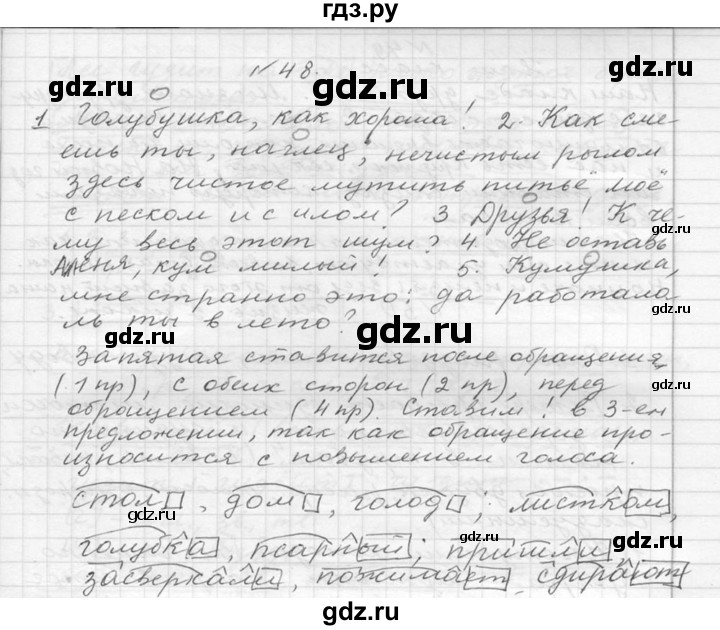 гдз.ру
№48.
gdz.ru gdz.ru
1 Голубушка, как хороша! 2. Как сме-
ешь ты, наглец, нечистым рылом
gdz.ru
здесь чистое мутить питьё моё
с песком и с илом? 3 Друзья! К че-
gdz.ru gdz.ru
му весь этот шум? 4. Не оставь
меня, кум милый! 5. Кумушка,
мне странно это: да работала
gdz.ru gdz.ru
ль ты в лето?
gdz.ru
Запятая ставится после обращения
(1 пр), с обеих сторон (2 пр), перед
gdz.ru gdz.ru
обращением (4 пр). Ставим ! в 3-ем
предложении, так как обращение про-
износится с повышением голоса.
gdz.ru
стол, дом, голод; листком,
gdz.ru gdz.ru
голубка, псарный; пришли
засверкали, пожимает, сдирают
gdz.ru